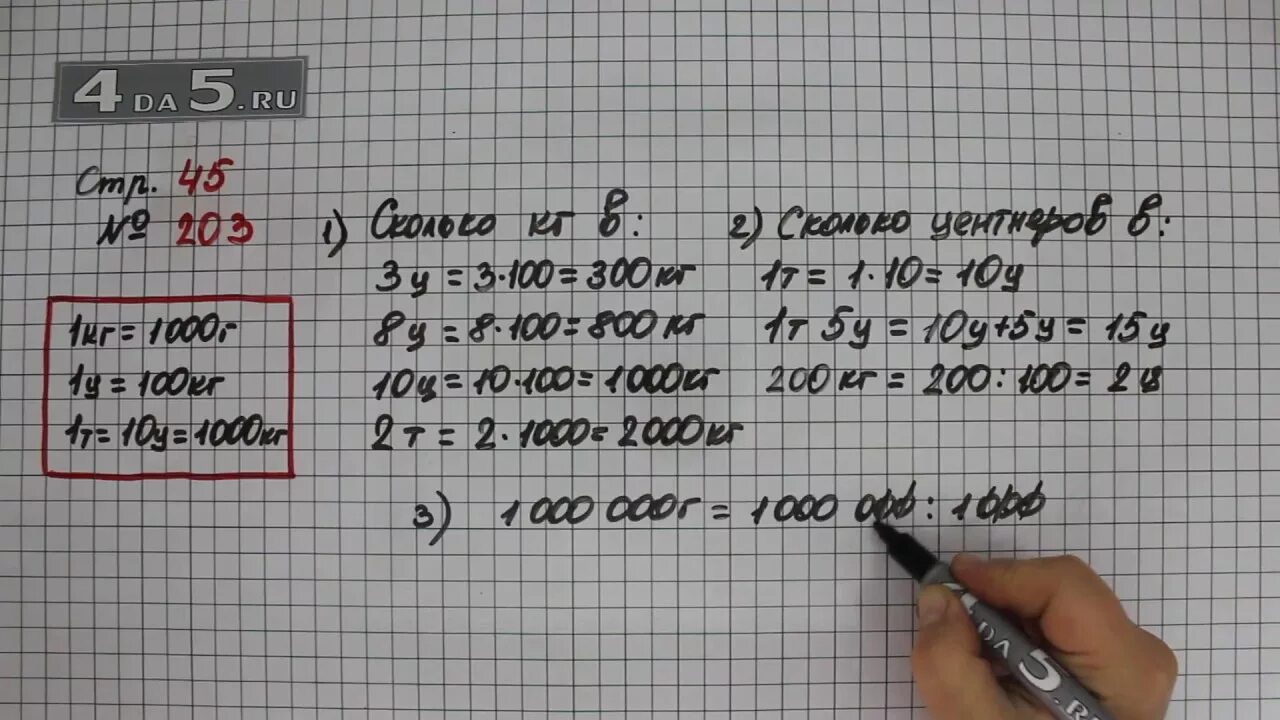 4DA5.RU
Стр. 45
№ 203
1кг = 1000г
1ц = 100кг
1т = 10ц = 1000кг
1) Сколько кг в:
3ц = 3·100 = 300кг
8ц = 8·100 = 800кг
10ц = 10·100 = 1000кг
2т = 2·1000 = 2000кг
2) Сколько центнеров в:
1т = 1·10 = 10ц
1т 5ц = 10ц+5ц = 15ц
200кг = 200:100 = 2ц
3) 1 000 000г = 1000 000 : 1000
DA5.RU